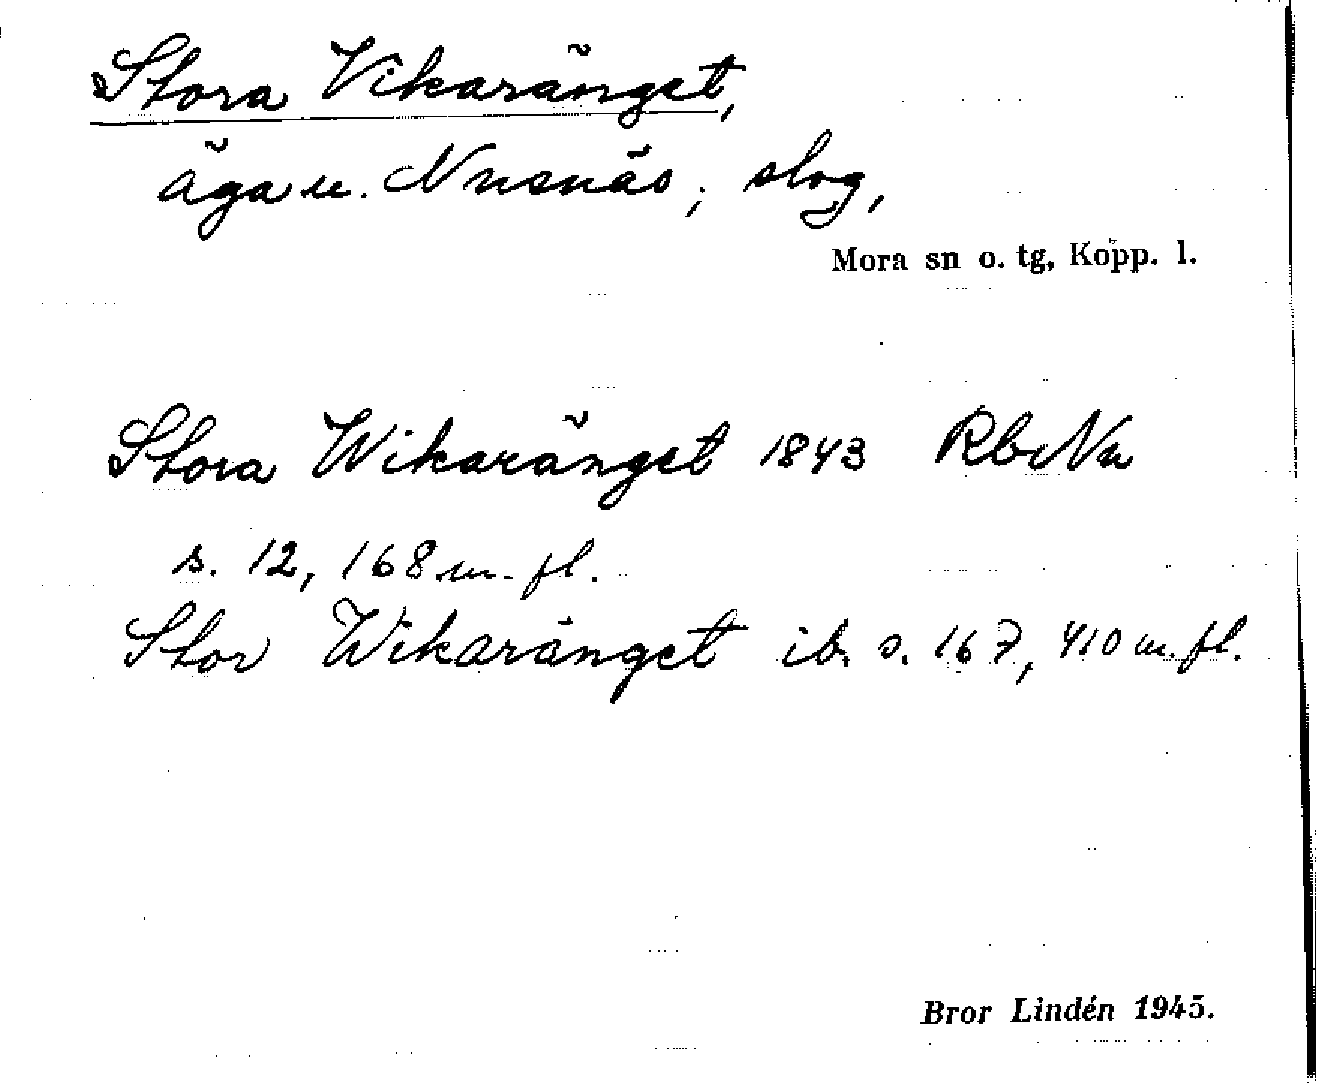 Stora Vikaränget,
äga u. Nusnäs; slog,
Mora sn o. tg, Kopp. l.
Stora Wikaränget 1843 RbNu
s. 12, 168 m. fl.
Stor Wikaränget ib. s. 167, 410 m. fl.
Bror Lindén 1945.